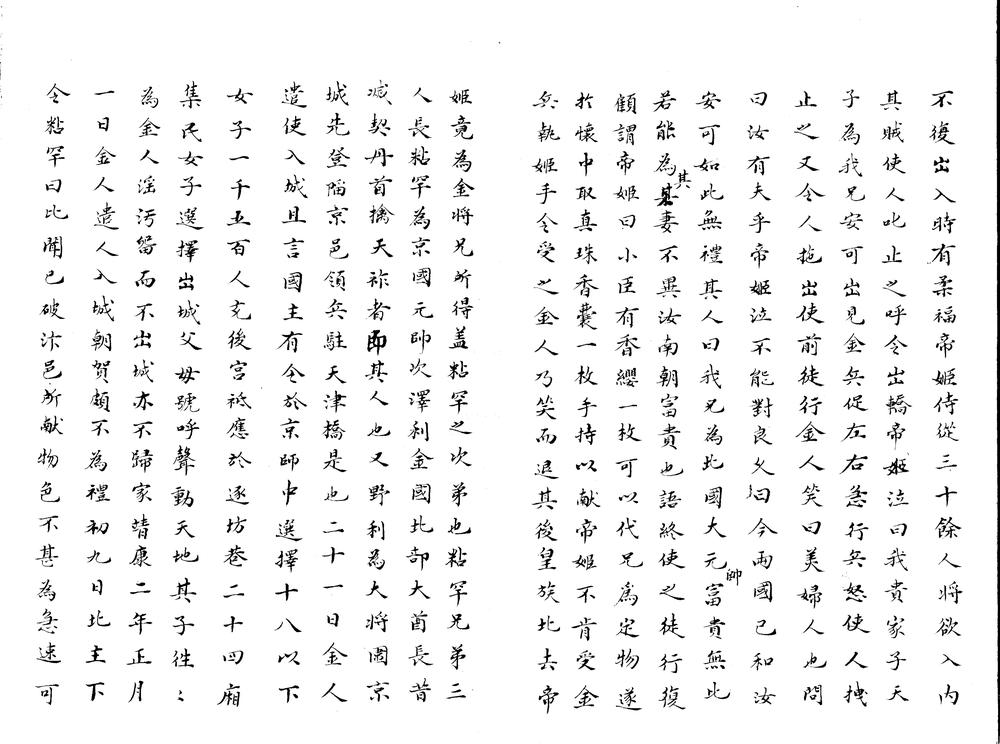 不復出入時有柔福帝姬侍從三十餘人將欲入内
其賊使人叱止之呼令出轎帝姬泣曰我貴家子天
子為我兄安可出見金兵促左右急行兵怒使人拽
止之又令人拖出使前徒行金人笑曰美婦人也問
曰汝有夫乎帝姬泣不能對良久曰今兩國已和汝
安可如此無禮其人曰我兄為北國大元帥富貴無比
若能為其妻不異汝南朝富貴也語終使之徒行復
顧謂帝姬曰小臣有香纓一枚可以代兄爲定物遂
扵懷中取真珠香囊一枚手持以献帝姬不肯受金
兵執姬手令受之金人乃笑而退其後皇族北去帝
姬竟為金將兄所得盖粘罕之次弟也粘罕兄弟三
人長粘罕為京國元帥次澤利金國北部大酋長昔
滅契丹首擒天祚者即其人也又野利為大將圍京
城先登陷京邑領兵駐天津橋是也二十一日金人
遣使入城且言國主有令於京師中選擇十八以下
女子一千五百人充後宮祗應於逐坊巷二十四廂
集民女子選擇出城父母號呼聲動天地其子徃〻
為金人淫污留而不出城亦不歸家靖康二年正月
一日金人遣人入城朝賀頗不為禮初九日北主下
令粘罕曰比聞已破汴邑所献物色不甚為急速可